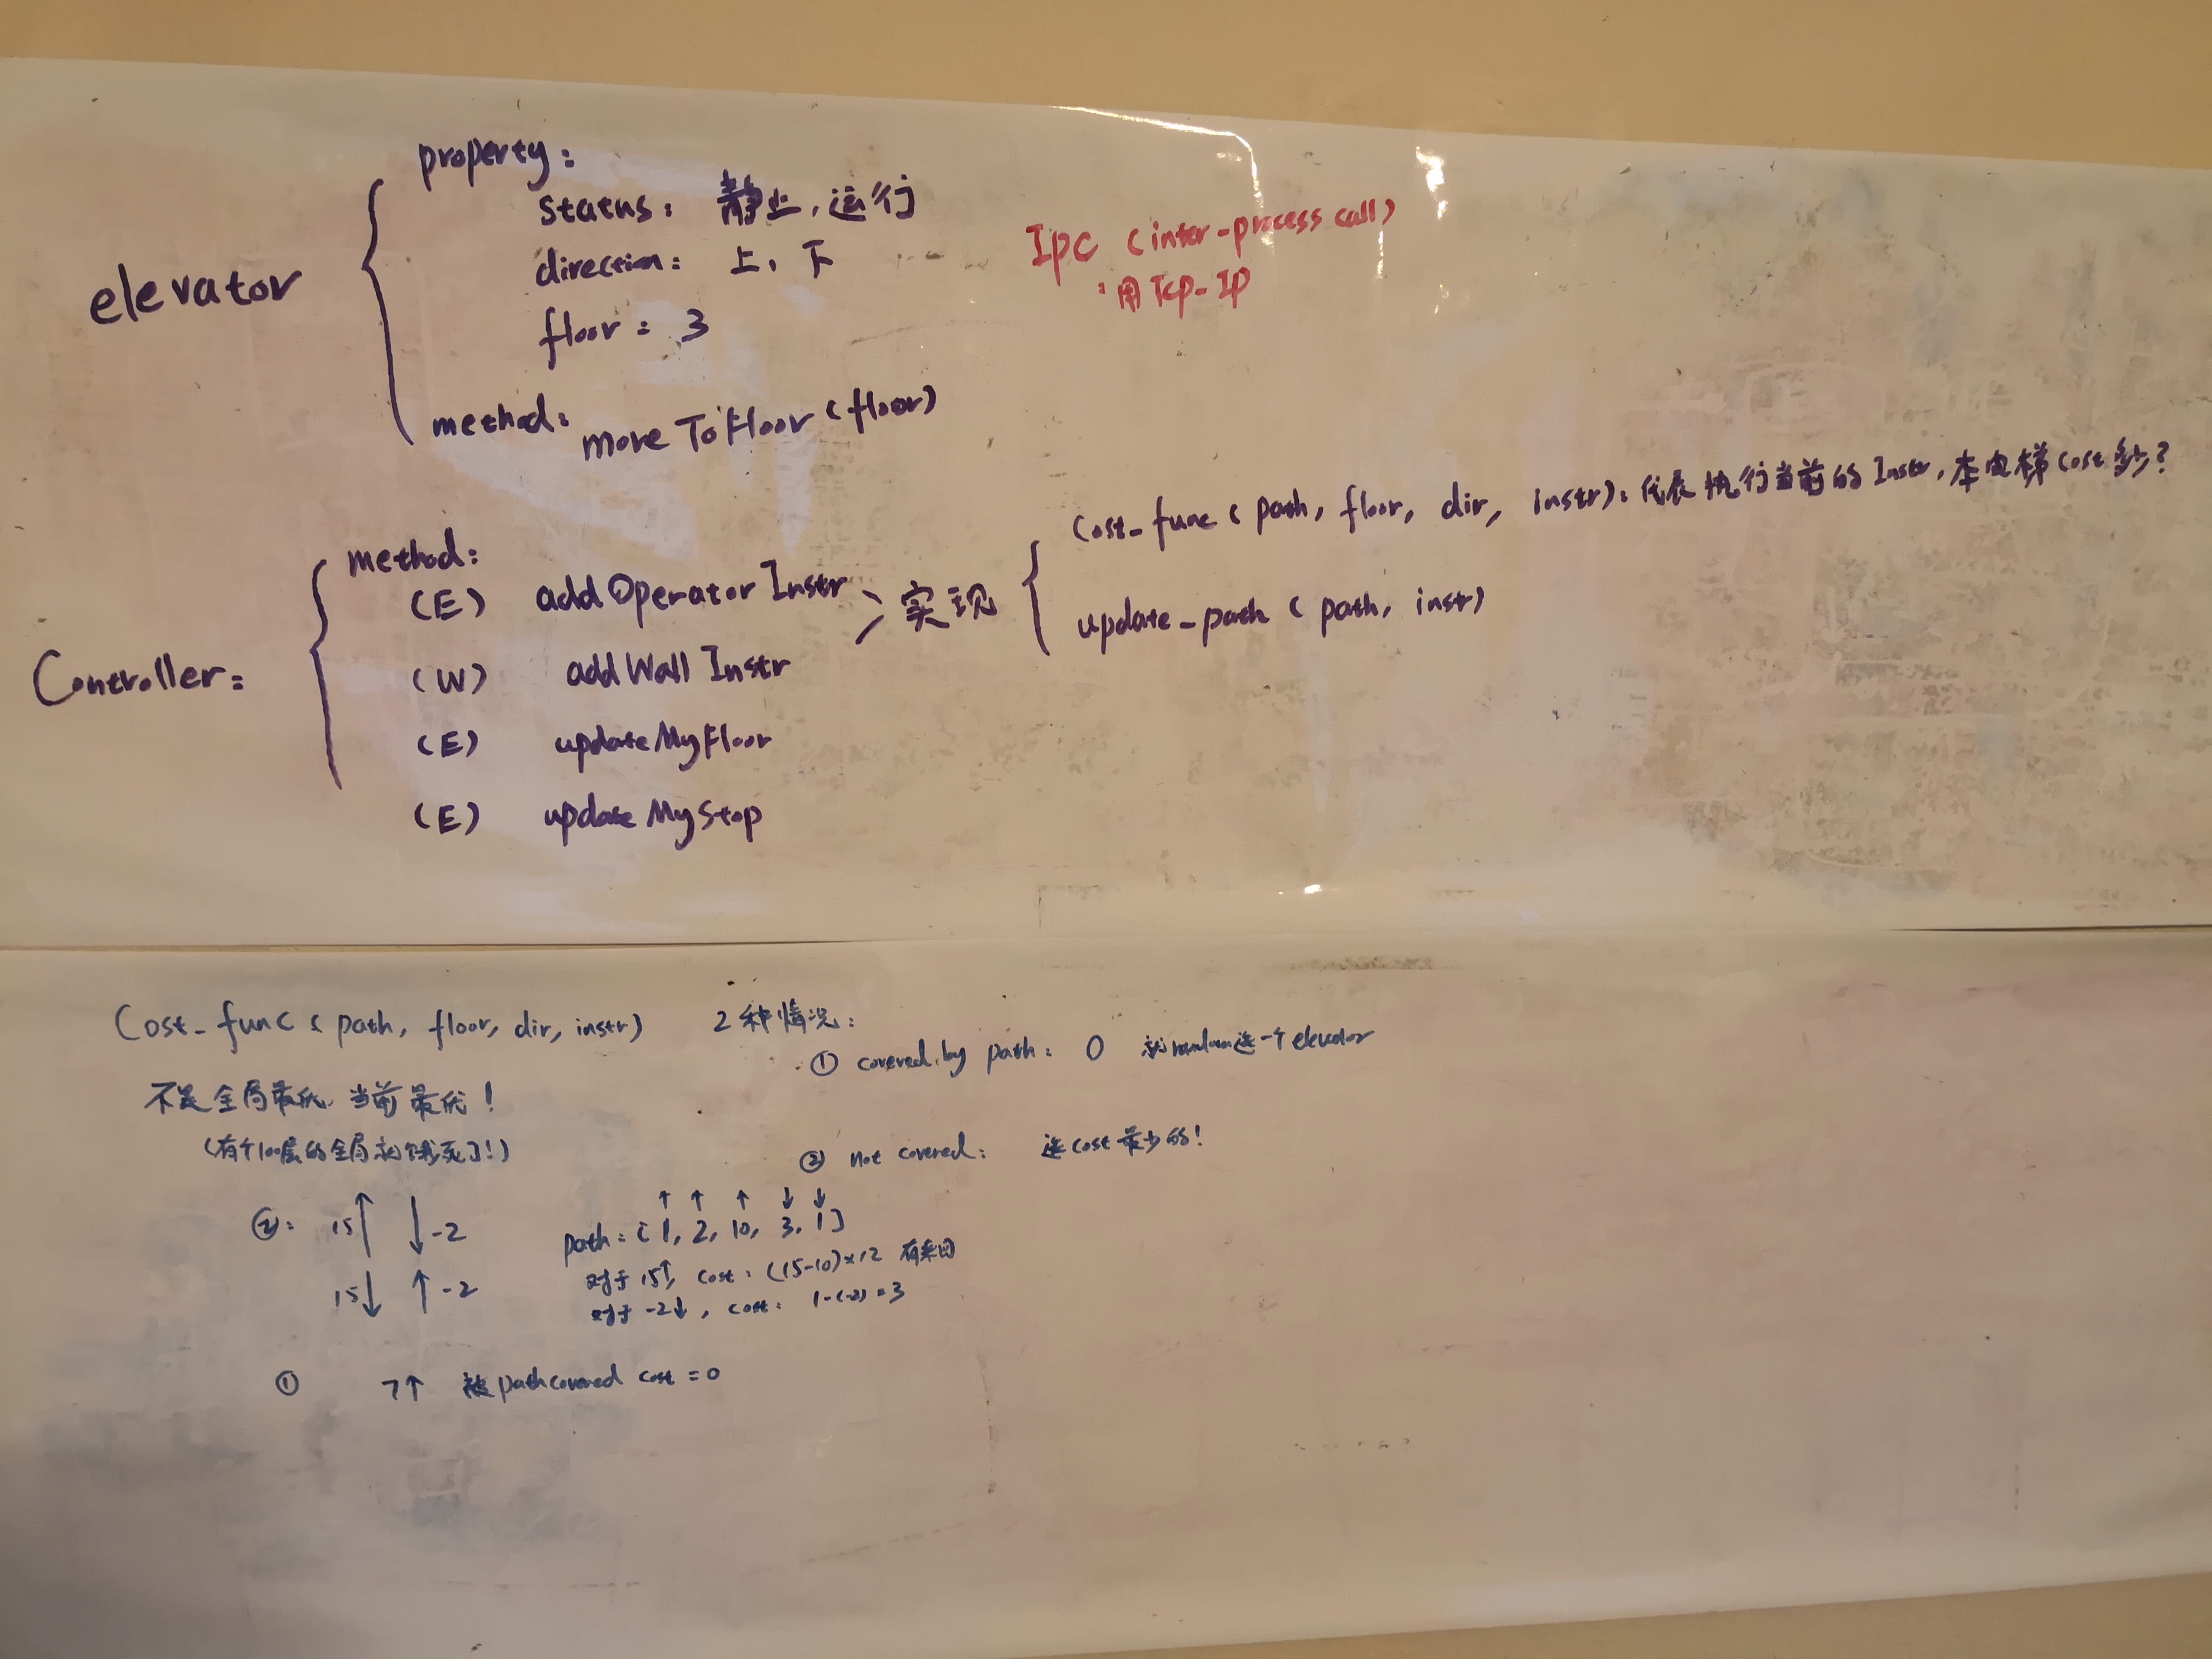 elevator
property:
status: 静止, 运行
direction: 上, 下
floor: 3
method: moveToFloor (floor)
Ipc (inter-process call)
: 用 Tcp-IP
Controller:
method:
(E) addOperatorInstr
(W) addWallInstr
(E) updateMyFloor
(E) updateMyStop
实现
Cost_func (path, floor, dir, instr): 代表执行当前的Instr, 本电梯cost多少?
update_path (path, instr)
Cost_func (path, floor, dir, instr) 2种情况:
① covered by path: 0 就random选一个elevator
不是全局最优 当前最优!
(有个100层的全局就饿死了!)
② not covered: 选cost最少的!
②: 15↑ ↓-2
15↓ ↑-2
↑ ↑ ↑ ↓ ↓
path: [1, 2, 10, 3, 1]
对于15↑, cost: (15-10)×2 有来回
对于-2↓, cost: 1-(-2)=3
① 7↑ 被path covered cost=0